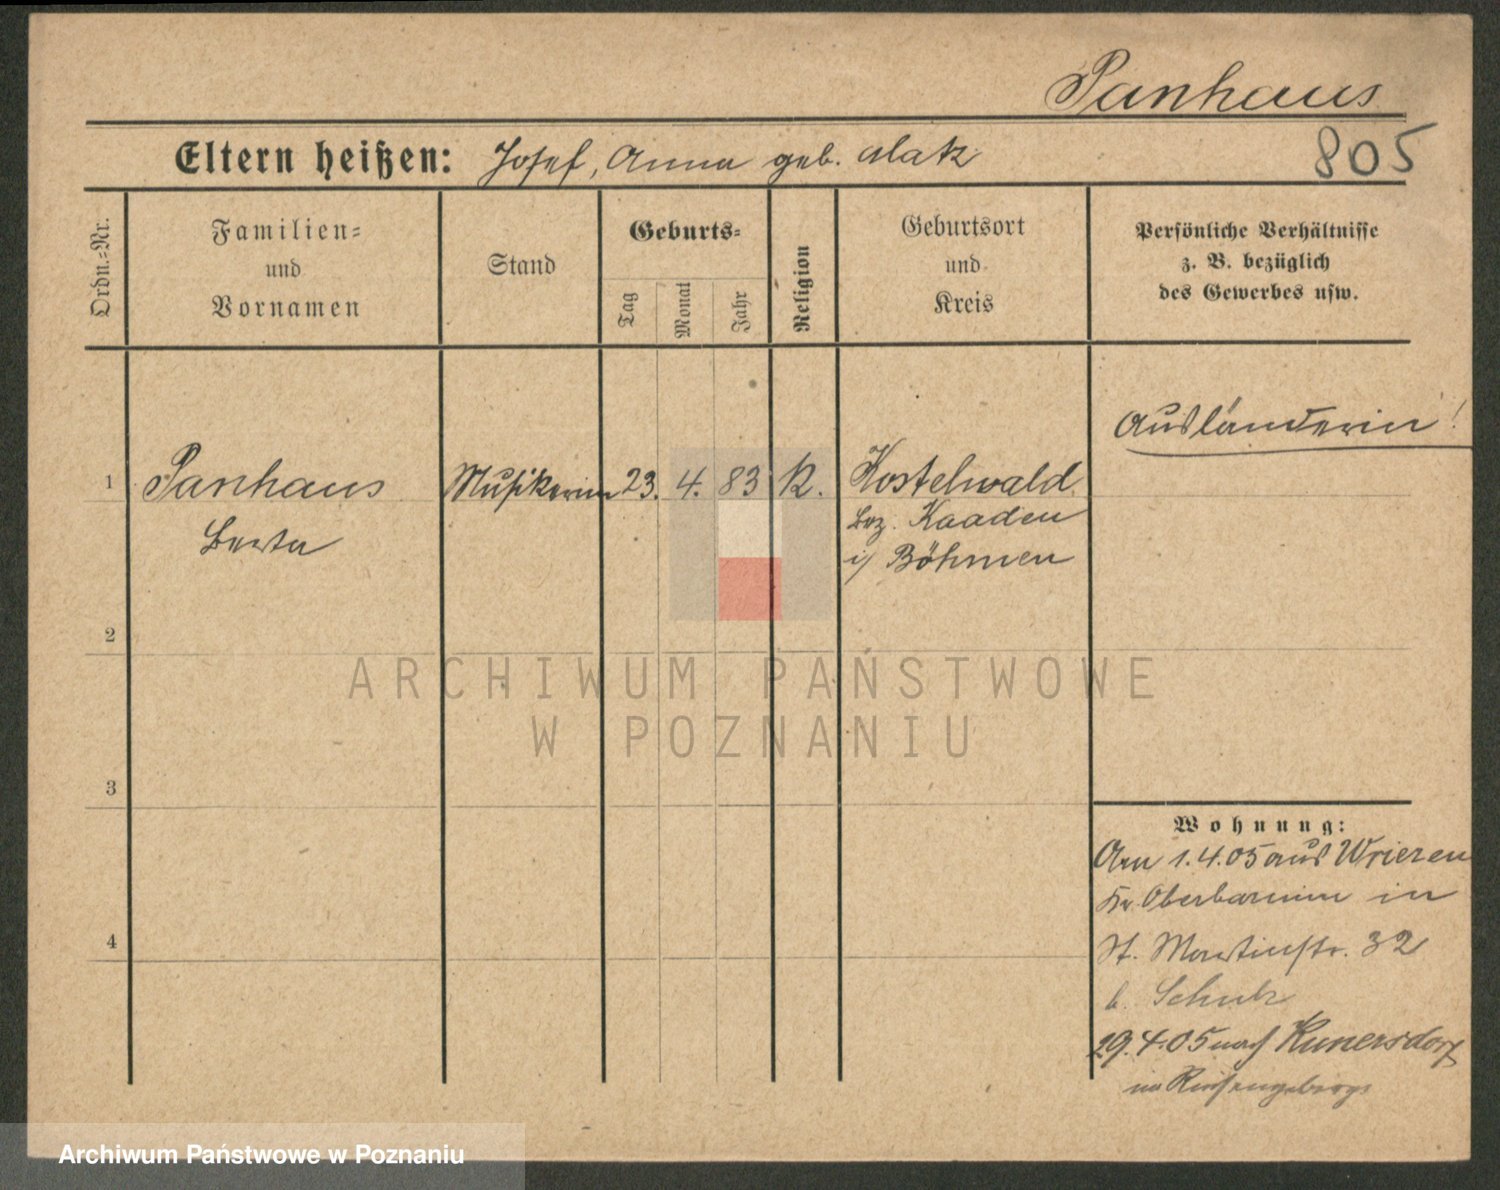 Panhaus
Eltern heißen: Josef, Anna geb. Mak
805
Ordn.-Nr.
Familien-
und
Vornamen
Stand
Geburts-
Tag
Monat
Jahr
Religion
Geburtsort
und
Kreis
Persönliche Verhältnisse
z. B. bezüglich
des Gewerbes usw.
Ausländerin!
1 Panhaus Musikerin 23. 4. 83 K. Kostelwald
Berta Bez. Kaaden
i/ Böhmen
2
ARCHIWUM PAŃSTWOWE
W POZNANIU
3
Wohnung:
Am 1.4.05 aus Wriezen
Kr. Oberbarnim in
St. Martinstr. 32
b. Schulz
29.4.05 nach Kunersdorf
im Riesengebirge
4
Archiwum Państwowe w Poznaniu